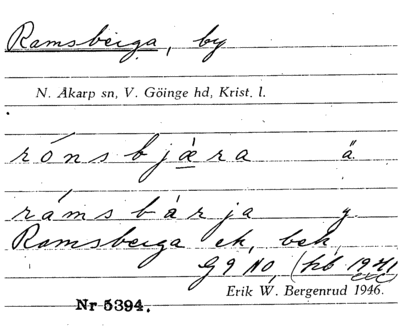 Ramsberga, by
N. Åkarp sn, V. Göinge hd, Krist. l.
rónsbjæ̀ra ä.
rámsbàrja y.
Ramsberga ek, bek,
G9 NO, (hb 1971)
Erik W. Bergenrud 1946.
Nr 5394.